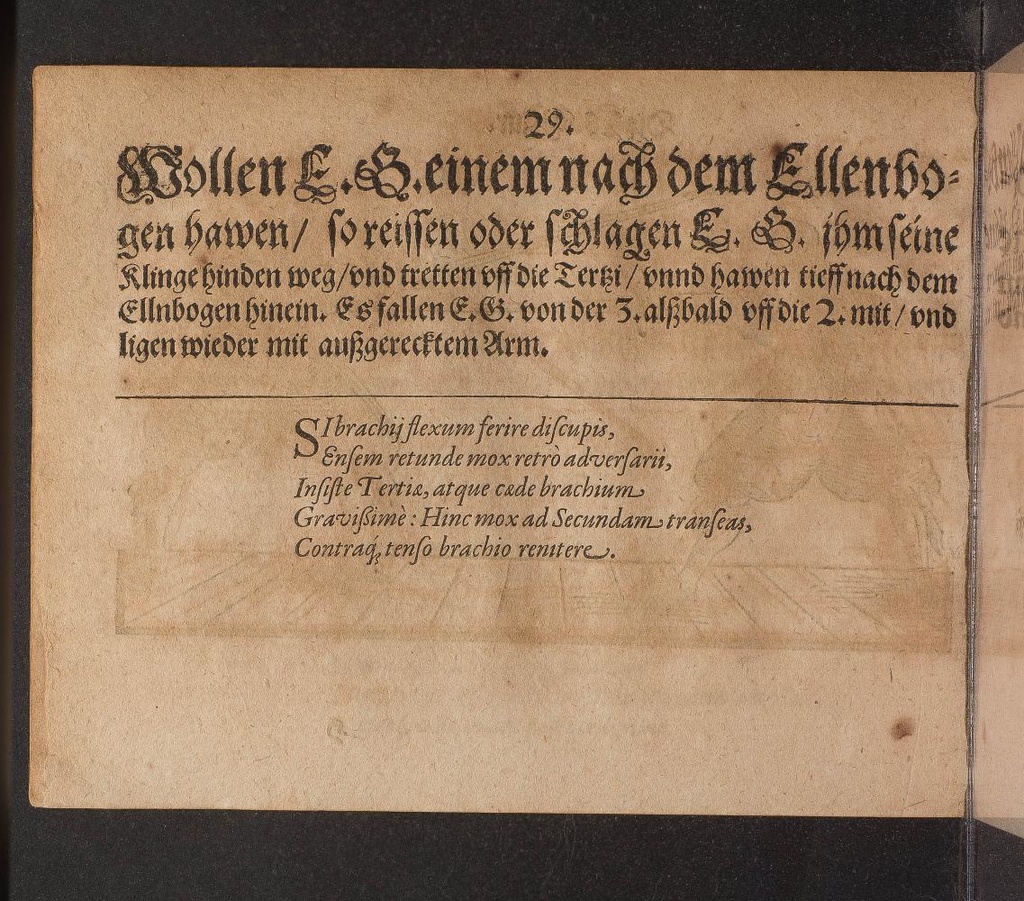 29.
Wollen E. G. einem nach dem Ellenbo-
gen hawen / so reissen oder schlagen E. G. ihm seine
Klinge hinden weg / vnd tretten vff die Tertzi / vnnd hawen tieff nach dem
Ellnbogen hinein. Es fallen E. G. von der 3. alßbald vff die 2. mit / vnd
ligen wieder mit außgerecktem Arm.
SI brachij flexum ferire discupis,
Ensem retunde mox retrò adversarii,
Insiste Tertiæ, atque cæde brachium
Gravißimè: Hinc mox ad Secundam transeas,
Contraq́; tenso brachio renitere.